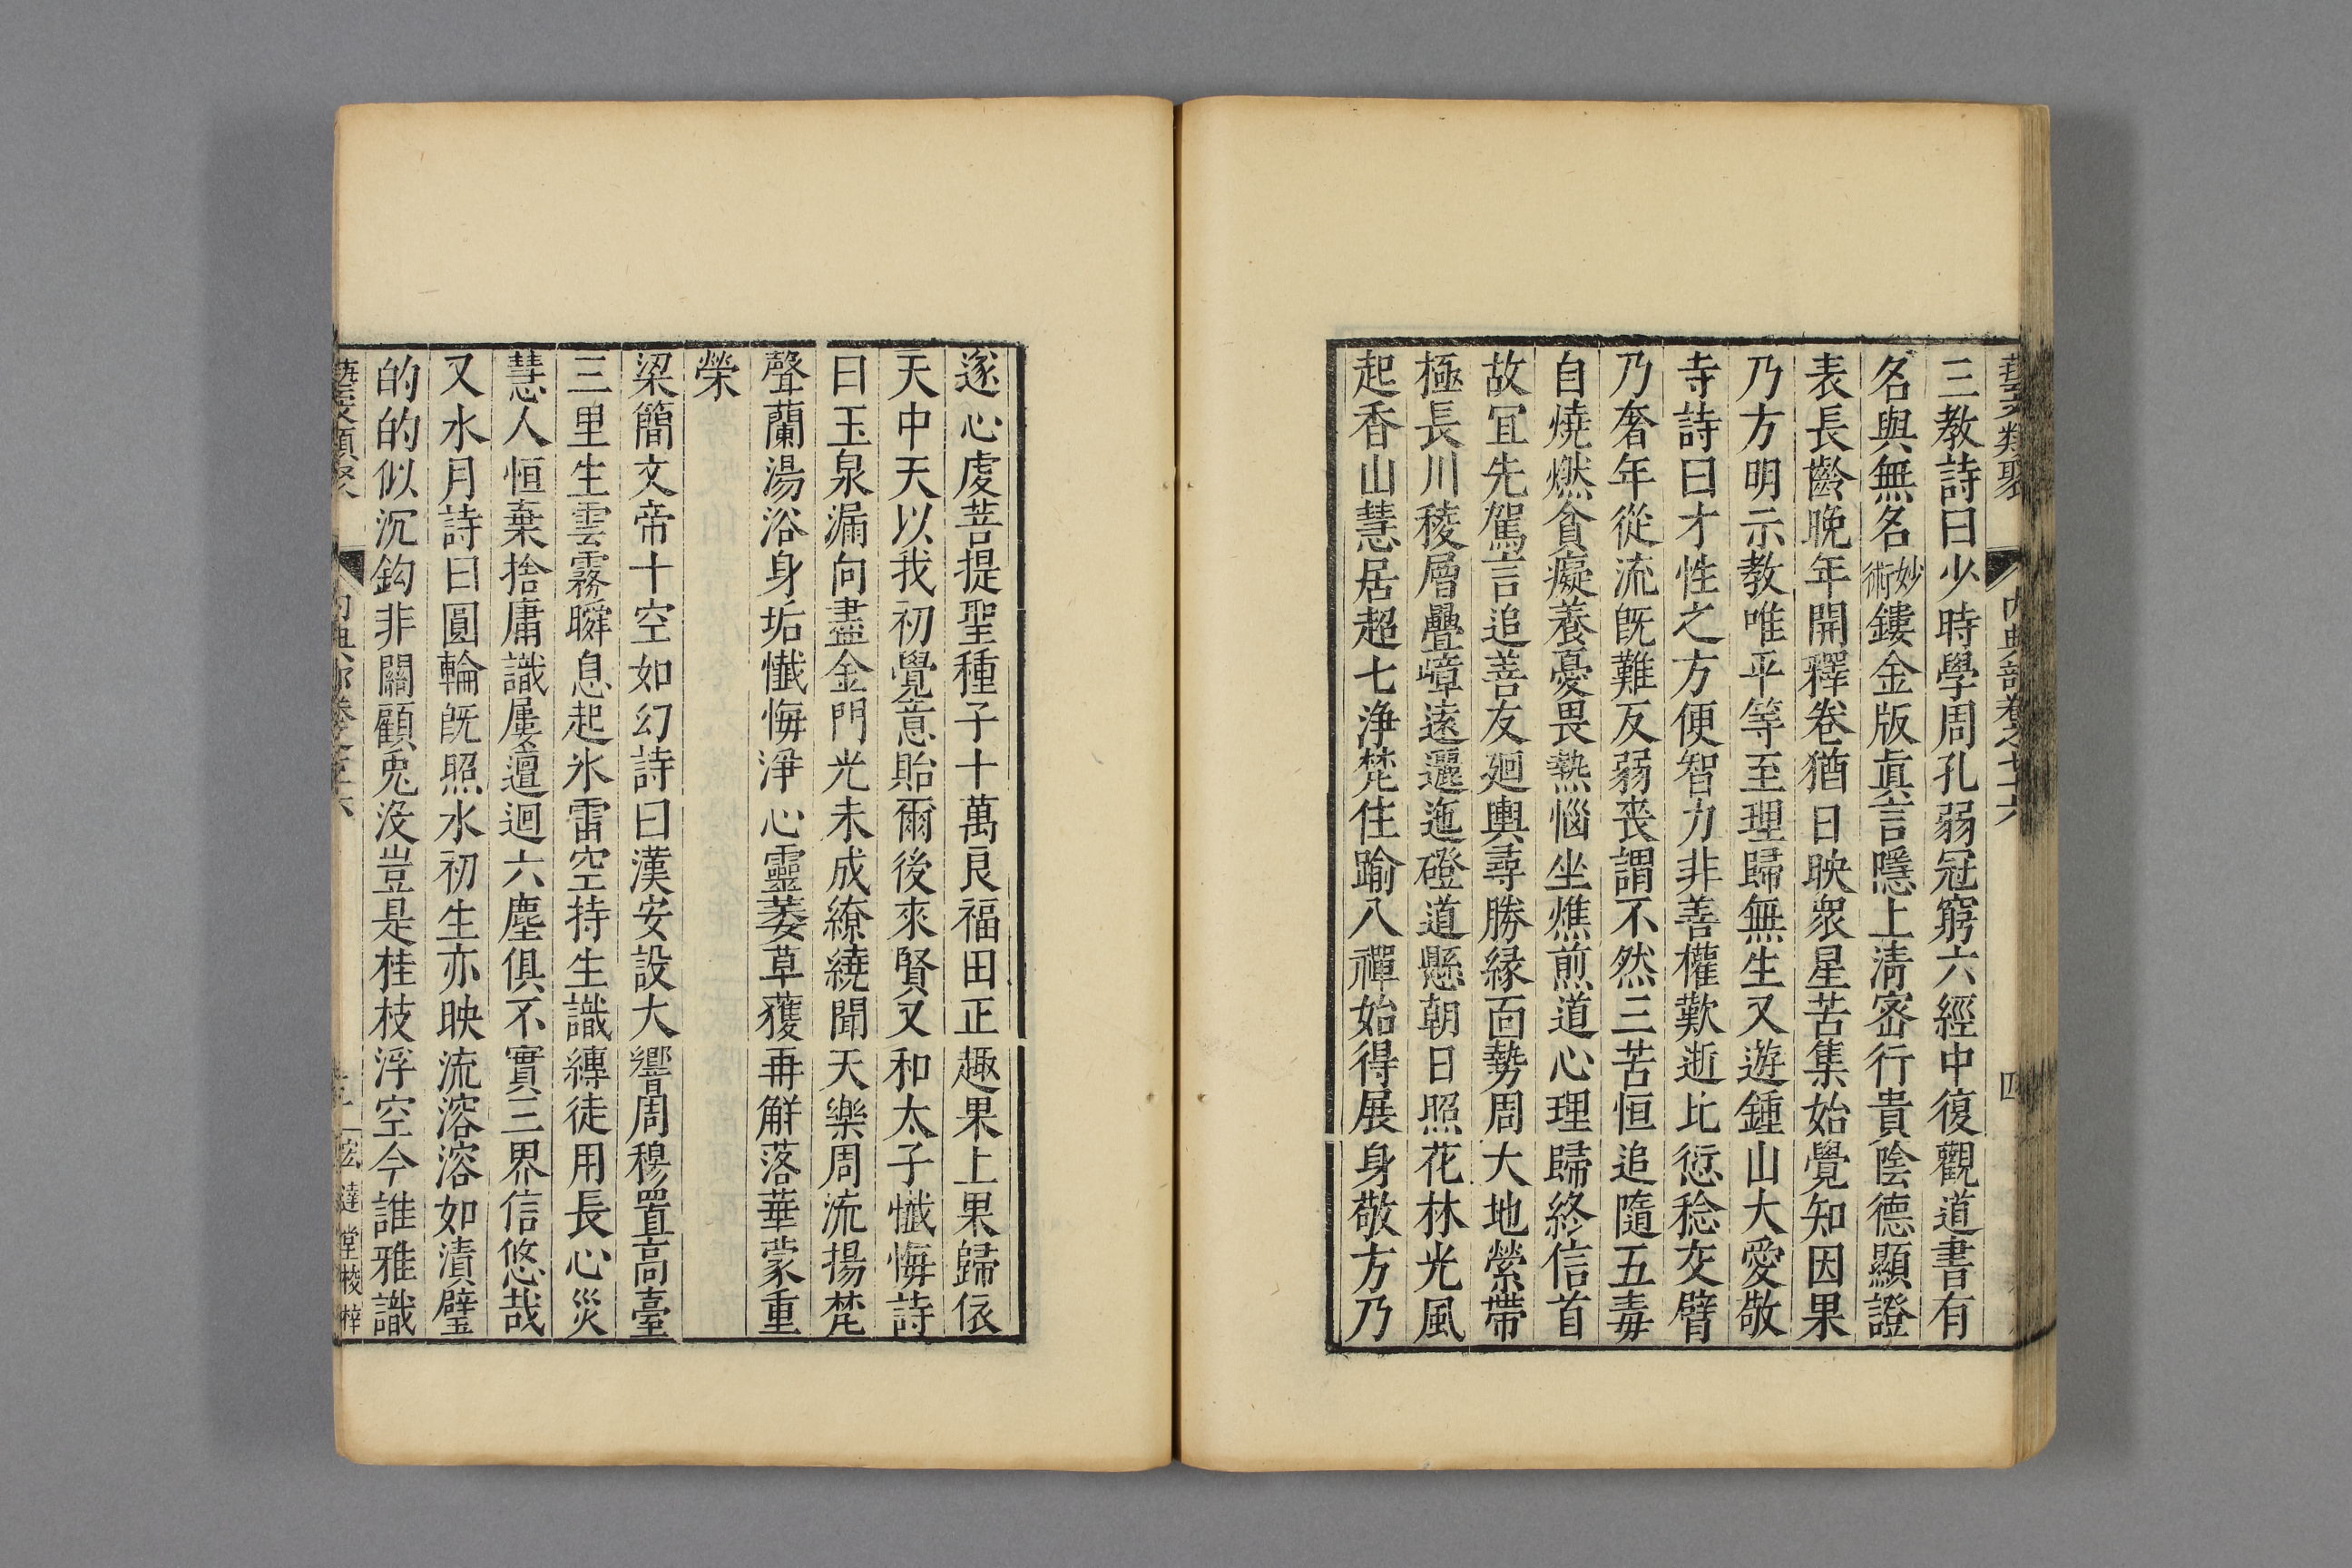 藝文類聚 內典部卷之七十六 四
三教詩曰少時學周孔弱冠窮六經中復觀道書有
名與無名妙術鏤金版眞言隱上清密行貴陰德顯證
表長齡晚年開釋卷猶日映衆星苦集始覺知因果
乃方明示教唯平等至理歸無生又遊鍾山大愛敬
寺詩曰才性之方便智力非善權歎逝比愆稔交臂
乃奢年從流既難反弱喪謂不然三苦恒追隨五毒
自燒燃貪癡養憂畏熱惱坐燋煎道心理歸終信首
故宜先駕言追善友廻輿尋勝縁面勢周大地縈帶
極長川稜層疊嶂遠邐迤磴道懸朝日照花林光風
起香山慧居超七淨梵住踰八禪始得展身敬方乃
遂心虔菩提聖種子十萬良福田正趣果上果歸依
天中天以我初覺意貽爾後來賢又和太子懺悔詩
曰玉泉漏向盡金門光未成繚繞聞天樂周流揚梵
聲蘭湯浴身垢懺悔淨心靈萎草獲再鮮落華蒙重
榮
梁簡文帝十空如幻詩曰漢安設大響周穆置高臺
三里生雲霧瞬息起氷雷空持生識縛徒用長心災
慧人恒棄捨庸識屢邅迴六塵俱不實三界信悠哉
又水月詩曰圓輪既照水初生亦映流溶溶如漬璧
的的似沉鈎非關顧兎沒豈是桂枝浮空今誰雅識
藝文類聚 內典部卷之七十六 堂校梓